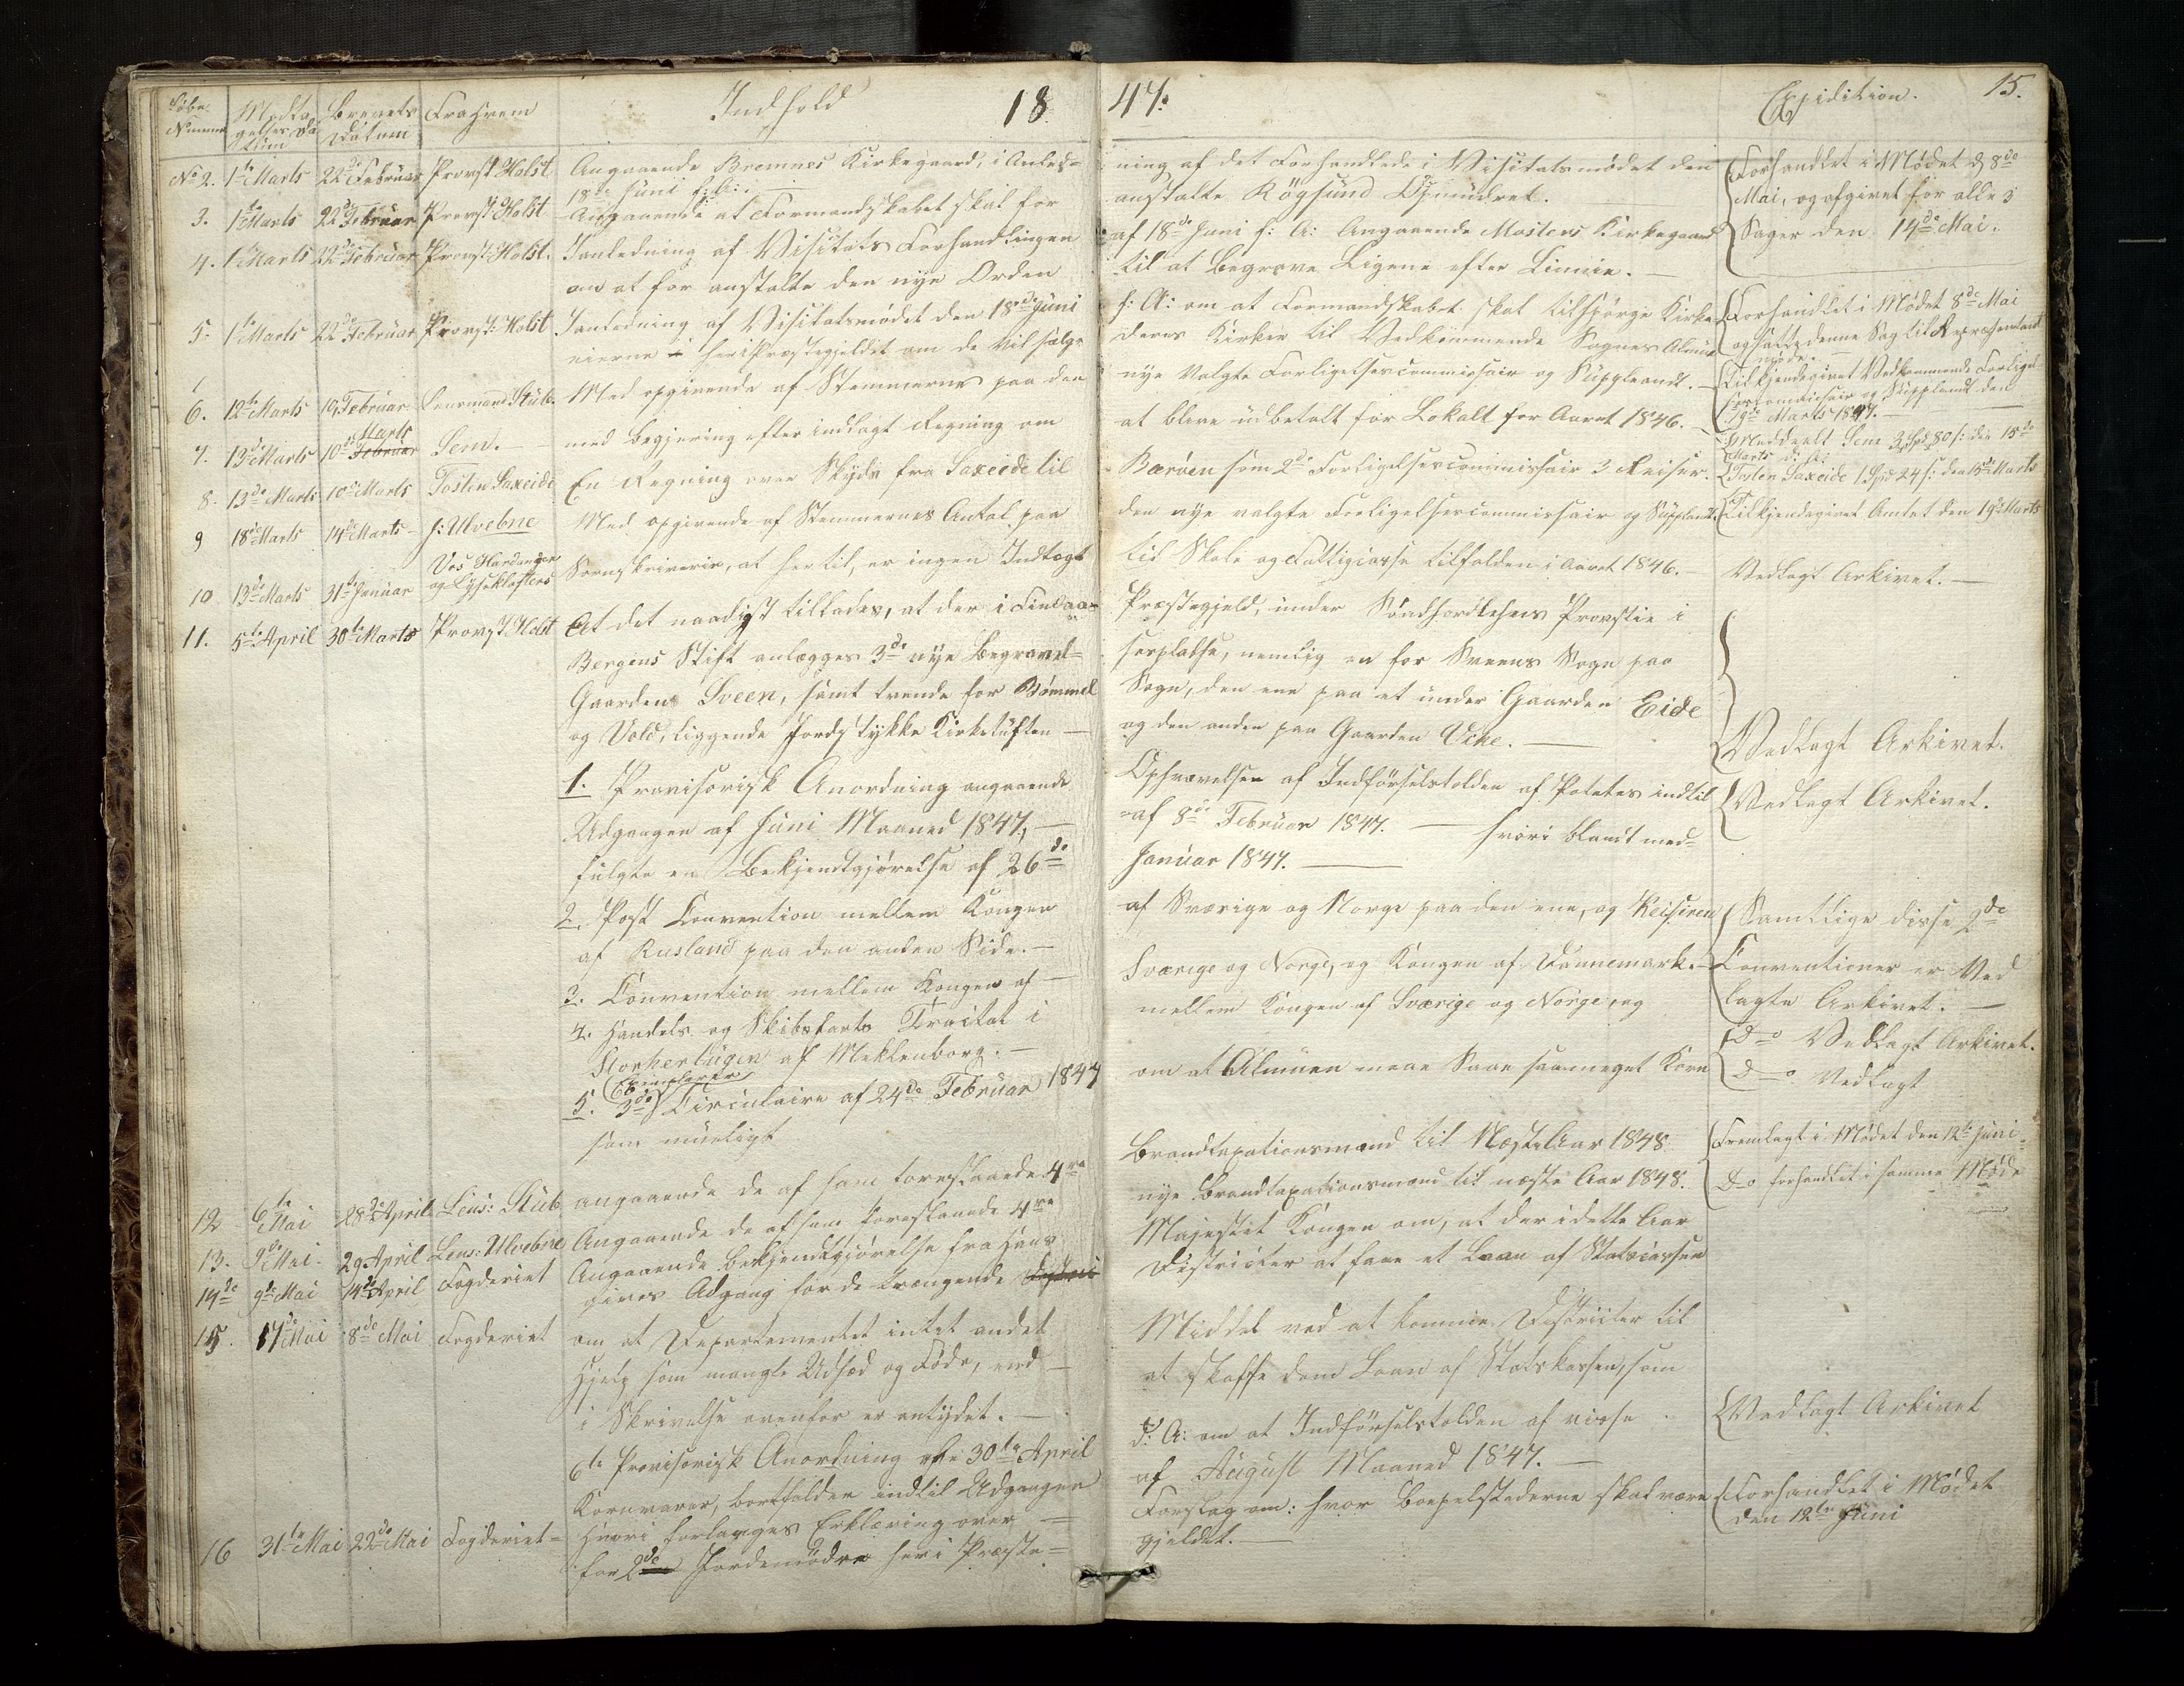 Løbe Nummer
Modtagelses Datum
Brevets Datum
Fra Hvem
Indhold
1847.
Expidition.
15.
No 2. 1te Marts 22de Februar Provst Holst Angaaende Bremnes Kirkegaard, i Anled= ning af det Forhandlede i Visitatsmødet den
18de Juni f: A:.
3. 1te Marts 22de Februar Provst Holst Angaaende at Formandskabet skal for anstalte Rögsund Opmudret.
Forhandlet i Mødet d 8de
Mai, og afgivet for alle 3
Sager den 14de Mai.
4. 1te Marts 22de Februar Provst Holst. Ianledning af Visitats Forhandlingen af 18de Juni f: A: Angaaende Mosters Kirkegaard
om at for anstalte den nye Orden til at begrave Ligene efter Linnie.
5. 1te Marts 22de Februar Provst: Holst Ianledning af Visitatsmødet den 18de Juni f: A: om at Formandskabet skal tilspørge Kirke
eierne i her i Præstegjeldet om de vil sælge deres Kirker til Vedkommende Sognes Almue
Forhandlet i Mødet 8de Mai
og satte denne Sag til Repræsentant
møde.
6. 12te Marts 19 Februar Lensmand Stub. Med opgivende af Stemmerne paa den nye Valgte Forligelsescommissair og Suppleandt.
Tilkjendegivet Vedkommende Forligel
sescommissair og Suppleandt den
19de Marts 1847.
7. 13de Marts 10de Februar Marts Sem. med begjering efter indlagt Regning om at blive udbetalt for Lokalt for Aaret 1846.
Meddeelt Sem 3 Spd 80 s: den 15de
Marts d: A:
8. 13de Marts 10de Marts Tosten Saxeide En Regning over Skyds fra Saxeide til Bærøen som 2de Forligelsescommissair 3 Reiser.
Tosten Saxeide 1 Spd 24 s: den 15de Marts
9 18de Marts 14de Marts J: Ulvebne Med opgivende af Stemmernes Antal paa den nye valgte Forligelsescommissair og Suppleandt.
Tilkjendegivet Amtet den 19de Marts
10 13de Marts 31te Januar Vos Hardanger og Lyseklosters Sorenskriverie, at hertil, er ingen Indtægt til Skole og Fattigcasse tilfalden i Aaret 1846.
Vedlagt Arkivet.
11. 5te April 30te Marts Provst Holst At det naadigst tillades, at der i Findaas Præstegjeld, under Søndhordlehns Provstie i
Bergens Stift anlægges 3de nye Begravel= sespladse, nemlig en for Sveens Sogn paa
Gaarden Sveen, samt tvende for Bømmel Sogn, den ene paa et under Gaarden Eide
og Vold, liggende Jordstykke Kirketuften og den anden paa Gaarden Vike.
Vedlagt Arkivet.
1. Provisorisk Anordning angaaende Ophævelsen af Indførselstolden af Potetes indtil
Udgangen af Juni Maaned 1847, af 8de Februar 1847. hvori blandt med=
fulgte en Bekjendtgjørelse af 26de Januar 1847.
Vedlagt Arkivet.
2. Post Convention mellem Kongen af Sværige og Norge paa den ene, og Keiseren
af Rusland paa den anden Side.
3. Convention mellem Kongen af Sværige og Norge, og Kongen af Dannemark.
Samtlige disse 2de
Conventioner er Ved
lagte Arkivet.
4. Handels og Skibsfarts Tractat i mellem Kongen af Sværige og Norge, og
Storhertugen af Meklenborg.
Do Vedlagt Arkivet.
5. 3de Exemplarer Circulaire af 24de Februar 1847 om at Almuen maae Saae saameget Korn
som mueligt
Do Vedlagt
12 6te Mai 28de April Lens: Stub angaaende de af ham foreslaaede 4re Brandtaxationsmænd til Næste Aar 1848
Fremlagt i Mødet den 12te Juni.
13. 9de Mai. 29 April Lens: Ulvebne Angaaende de af ham foreslaaede 4re nye Brandtaxationsmænd til næste Aar 1848.
Do forhandlet i samme Møde
14de 9de Mai 14de April Fogderiet Angaaende bekjendtgjørelse fra Hans Majestet Kongen om, at der i dette Aar
gives Adgang for de trængende Districter at faae et Laan af Statscassen
15. 17de Mai 8de Mai Fogderiet om at Departementet intet andet Middel ved at komme Districter til
Hjelp som mangle Udsæd og Føde, end at skaffe dem Laan af Statskassen, som
i Skrivelse ovenfor er antydet.
6te Provisorisk Anordning 30te April d: A: om at Indførselstolden af visse
Kornvarer, bortfalder indtil Udgangen af August Maaned 1847.
Vedlagt Arkivet
16 31te Mai 22de Mai Fogderiet= Hvori forlanges Erklæring over Forslag om: hvor Boepelstederne skal være
for 2de Jordemødre her i Præste= gjeldet.
Forhandlet i Mødet
den 12te Juni